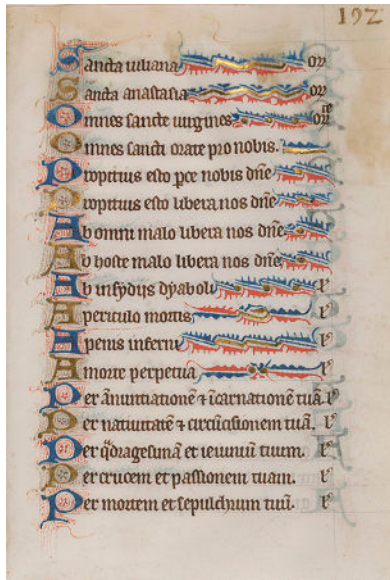 192
Sancta iuliana or
Sancta anastasia or
Omnes sancte uirgines or
Omnes sancti orate pro nobis.
Propitius esto pce nobis dñe
Propitius esto libera nos dñe
Ab omni malo libera nos dñe
Ab hoste malo libera nos dñe
Ab insydijs dyaboli lˀ
A periculo mortis lˀ
A penis inferni lˀ
A morte perpetua lˀ
Per ãnuntiationẽ ⁊ ĩcarnationẽ tuã. lˀ
Per natiuitatẽ ⁊ circũcisionem tuã. lˀ
Per q̃dragesimã et ieiuniũ tuum. lˀ
Per crucem et passionem tuam. lˀ
Per mortem et sepulchrum tuũ. lˀ